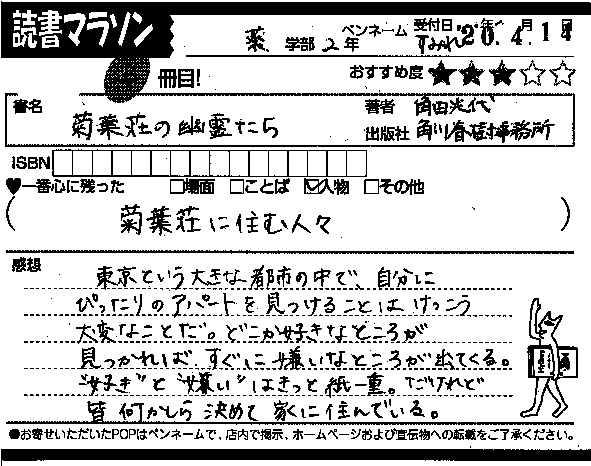 読書マラソン
薬 学部 2年 ペンネーム すみれ 受付日 20年 4月 14日
冊目!
おすすめ度 ★★★☆☆
書名 菊葉荘の幽霊たち
著者 角田光代
出版社 角川春樹事務所
ISBN
♥一番心に残った □場面 □ことば ☑人物 □その他
(菊葉荘に住む人々)
感想
東京という大きな都市の中で、自分に
ぴったりのアパートを見つけることはけっこう
大変なことだ。どこか好きなところが
見つかれば、すぐに嫌いなところが出てくる。
"好き"と"嫌い"はきっと紙一重。だけれど
皆何かしら決めて家に住んでいる。
●お寄せいただいたPOPはペンネームで、店内で掲示、ホームページおよび宣伝物への転載をご了承ください。